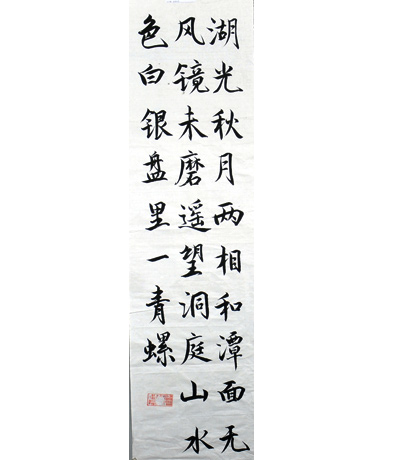 湖光秋月两相和潭面无
风镜未磨遥望洞庭山水
色白银盘里一青螺